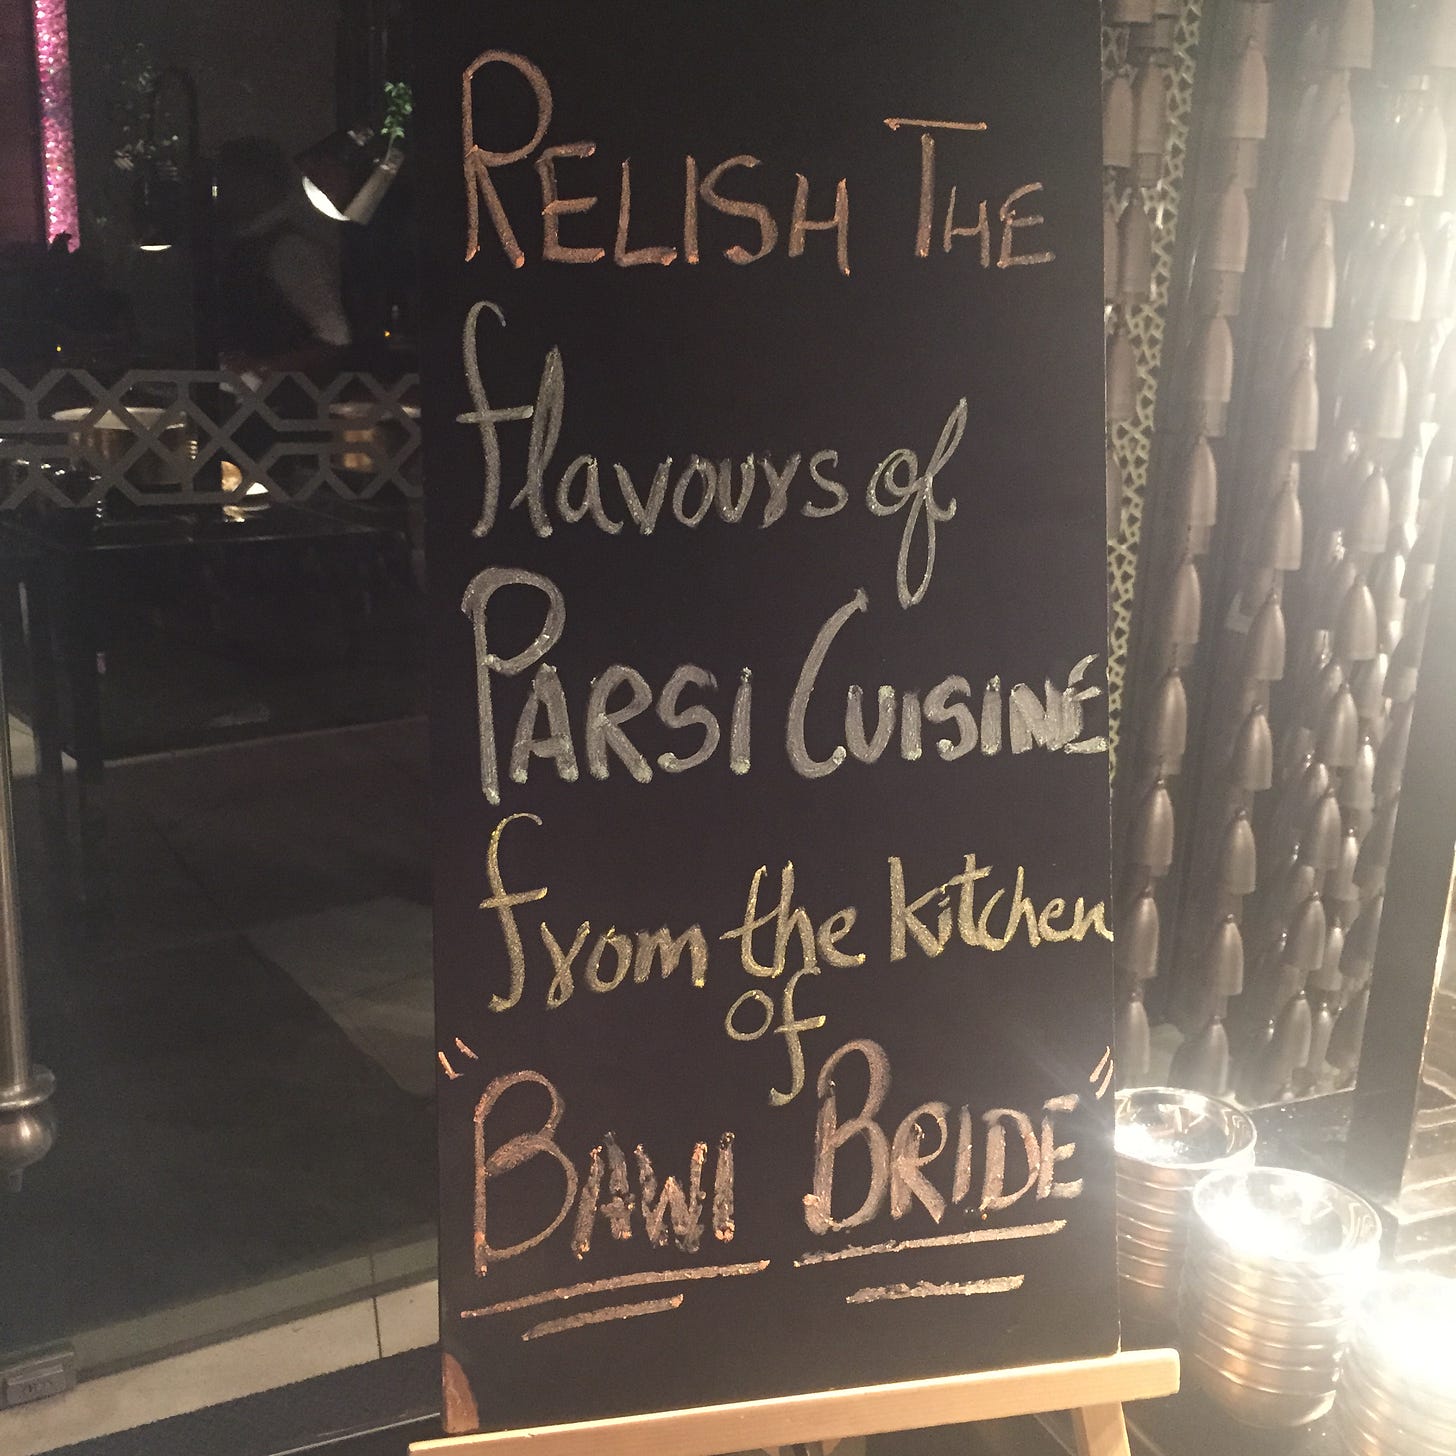 RELISH THE
flavours of
PARSI CUISINE
from the kitchen
of
"BAWI BRIDE"